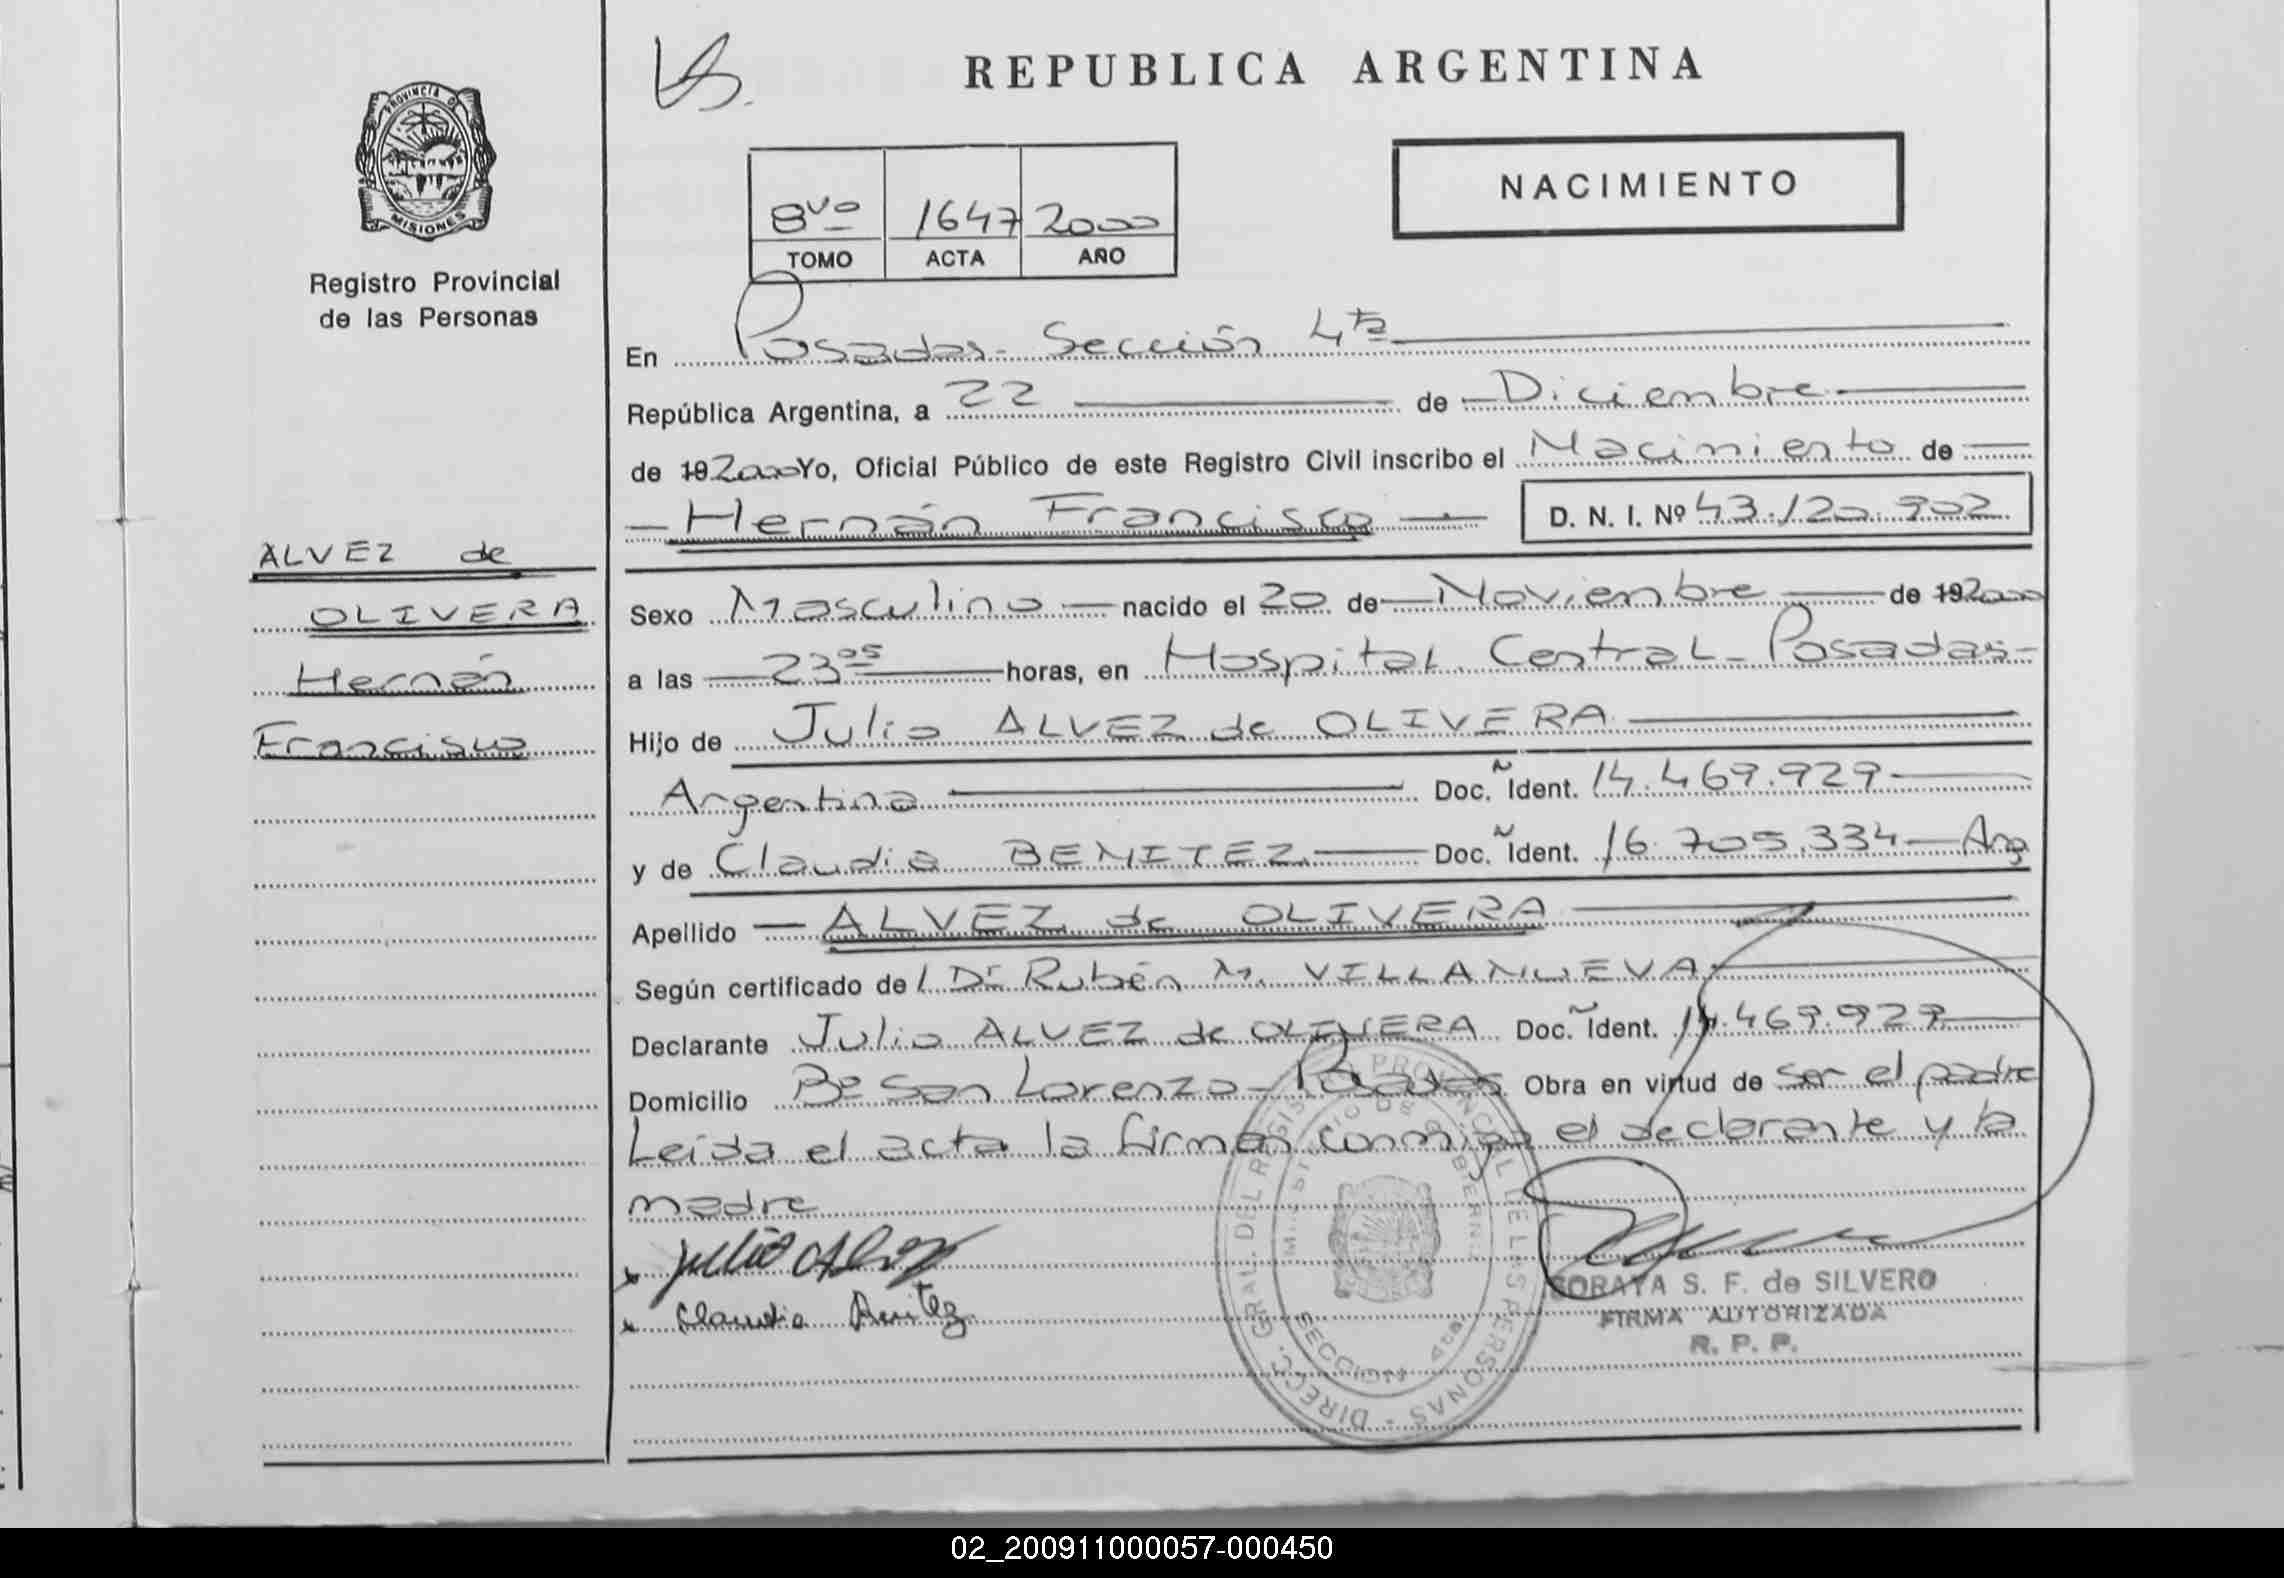 REPUBLICA ARGENTINA
PROVINCIA DE
MISIONES
Registro Provincial
de las Personas
NACIMIENTO
8vo 1647 2000
TOMO ACTA AÑO
En Posadas - Sección 4ta
República Argentina, a 22 de Diciembre
de 192000 Yo, Oficial Público de este Registro Civil inscribo el Nacimiento de
Hernán Francisco D. N. I. Nº 43.120.902
ALVEZ de
OLIVERA
Hernán
Francisco
Sexo Masculino nacido el 20 de Noviembre de 192000
a las 23 05 horas, en Hospital Central - Posadas -
Hijo de Julio ALVEZ de OLIVERA
Argentina Doc. Ident. 14.469.929
y de Claudia BENITEZ Doc. Ident. 16.705.334 - Arg
Apellido ALVEZ de OLIVERA
Según certificado de l Dr Rubén M. VILLANUEVA
Declarante Julio ALVEZ de OLIVERA Doc. Ident. 14.469.929
Domicilio Bº San Lorenzo - Posadas Obra en virtud de ser el padre
Leída el acta la firman conmigo el declarante y la
madre
x Julio Alvez
x Claudia Benitez
DIRECC. GRAL. DEL REGISTRO PROVINCIAL DE LAS PERSONAS -
MINISTERIO DE GOBIERNO
SECCION 4ta
SORAYA S. F. de SILVERO
FIRMA AUTORIZADA
R. P. P.
02_200911000057-000450